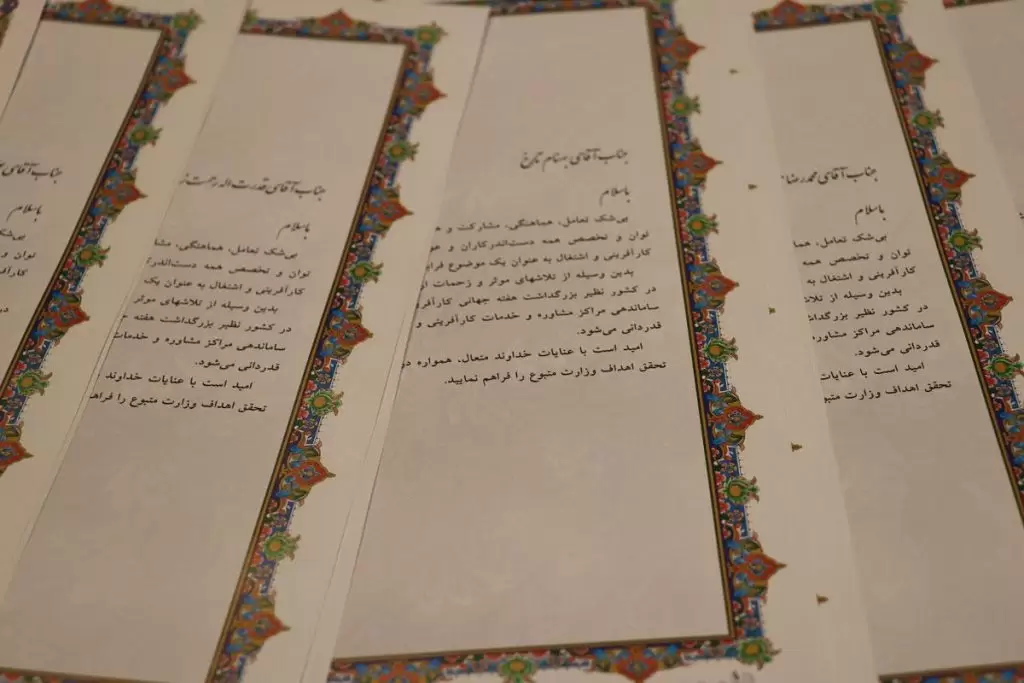 جناب آقای
باسلام
بی‌شک
توان و
کارآفرینی
جناب آقای قدرت اله رحمت
باسلام
بی‌شک تعامل، هماهنگی،
توان و تخصص همه
کارآفرینی و اشتغال به عنوان یک
بدین وسیله از تلاشهای موثر
در کشور نظیر بزرگداشت هفته
ساماندهی مراکز مشاوره و خدمات
قدردانی می‌شود.
امید است با عنایات خداوند
تحقق اهداف وزارت متبوع را
جناب آقای بهنام تارخ
باسلام
بی‌شک تعامل، هماهنگی، مشارکت و
توان و تخصص همه دست‌اندرکاران و
کارآفرینی و اشتغال به عنوان یک موضوع
بدین وسیله از تلاشهای موثر و زحمات
در کشور نظیر بزرگداشت هفته جهانی
ساماندهی مراکز مشاوره و خدمات کارآفرینی و
قدردانی می‌شود.
امید است با عنایات خداوند متعال، همواره
تحقق اهداف وزارت متبوع را فراهم نمایید.
جناب آقای محمدرضا
باسلام
بی‌شک تعامل،
توان و تخصص همه
کارآفرینی و اشتغال به
بدین وسیله از
در کشور نظیر
ساماندهی مراکز مشاوره
قدردانی می‌شود.
امید است با عنایات
تحقق اهداف وزارت